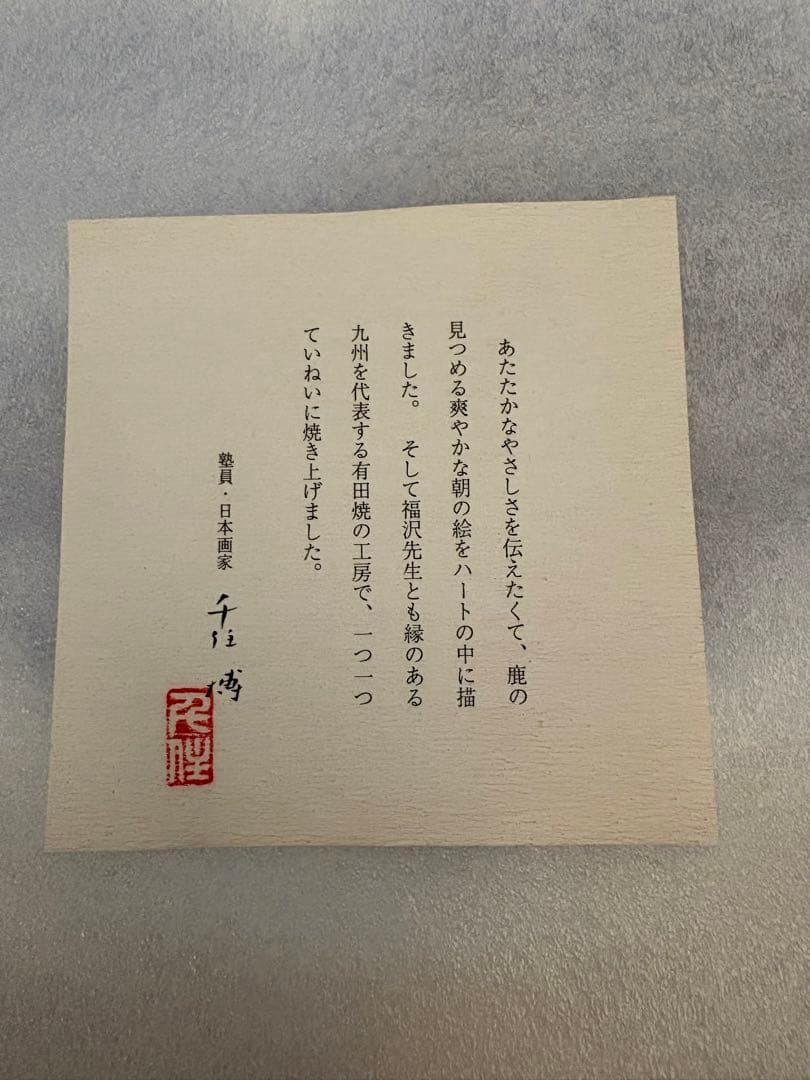 あたたかなやさしさを伝えたくて、鹿の
見つめる爽やかな朝の絵をハートの中に描
きました。 そして福沢先生とも縁のある
九州を代表する有田焼の工房で、一つ一つ
ていねいに焼き上げました。
塾員・日本画家 千住 博
千住